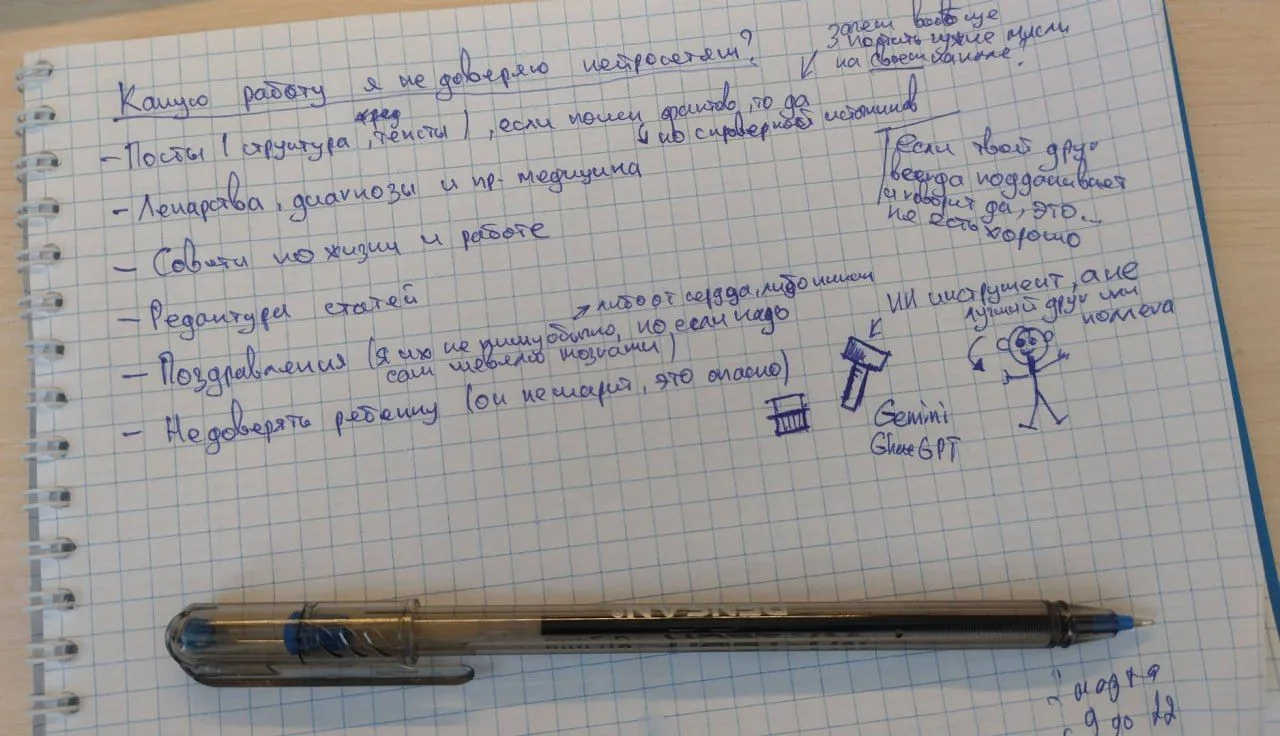 Какую работу я не доверяю нейросетям?
Зачем вообще
постить чужие мысли
на своем канале?
- Посты (структура, тексты), если поиск фактов, то да
пред
но с проверкой источников
- Лекарства, диагнозы и пр. медицина
- Советы по жизни и работе
- Редактура статей
- Поздравления (я их не пишу обычно, но если надо
сам шевелю мозгами)
либо от сердца, либо никак
- Не доверять ребенку (он не шарит, это опасно)
Если твой друг
всегда поддакивает
и говорит да, это
не есть хорошо
ИИ инструмент, а не
лучший друг или
коллега
Gemini
ChatGPT
PENSAN
9 до 22